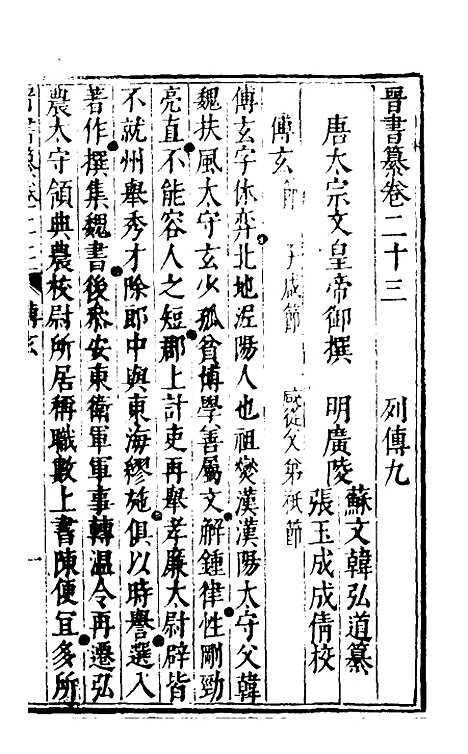 晉書纂卷二十三 列傳九
唐太宗文皇帝御撰 明廣陵蘇文韓弘道纂
張玉成成倩校
傅玄節 子咸節 咸從父弟祇節
傅玄字休弈北地泥陽人也祖燮漢漢陽太守父韓
魏扶風太守玄少孤貧博學善屬文解鍾律性剛勁
亮直不能容人之短郡上計吏再舉孝廉太尉辟皆
不就州舉秀才除郎中與東海繆施俱以時譽選入
著作撰集魏書後叅安東衛軍軍事轉溫令再遷弘
農太守領典農校尉所居稱職數上書陳便宜多所
晉書纂卷二十三 傅玄 一